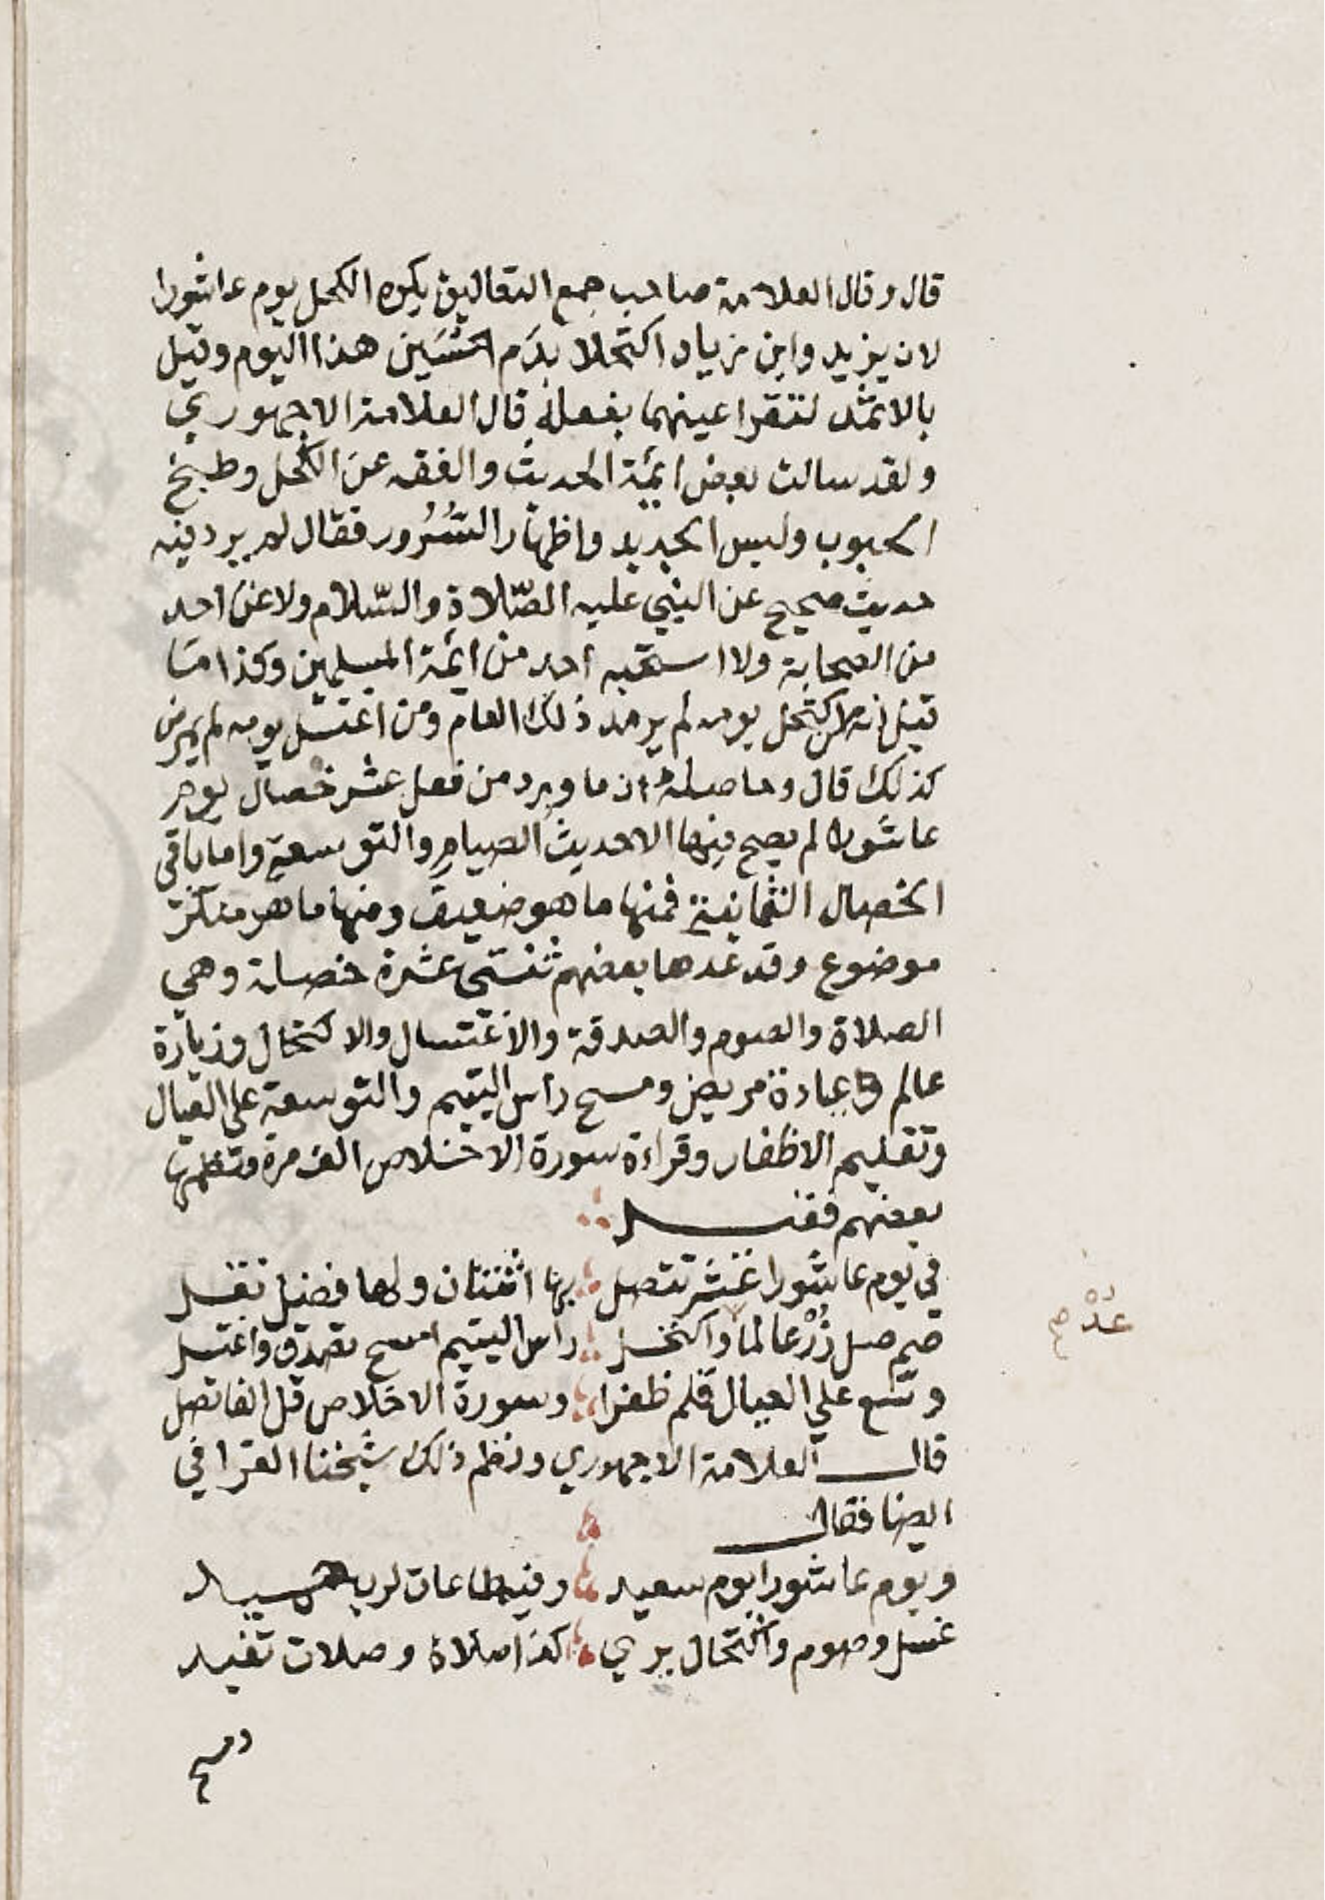 قال وقال العلامة صاحب جمع التعاليق يكره الكحل يوم عاشورا
لان يزيد وابن زياد اكتحلا بدم الحسين هذا اليوم وقيل
بالاثمد لتقر اعينهما بفعله قال العلامة الاجهوري
ولقد سالت بعض ائمة الحديث والفقه عن الكحل وطبخ
الحبوب ولبس الجديد واظهار السرور فقال لم يرد فيه
حديث صحيح عن النبي عليه الصلاة والسلام ولا عن احد
من الصحابة ولا استحبه احد من ائمة المسلمين وكذا ما
قيل انه من اكتحل يومه لم يرمد ذلك العام ومن اغتسل يومه لم يمرض
كذلك قال وحاصله ان ما ورد من فعل عشر خصال يوم
عاشورا لم يصح منها الا حديث الصيام والتوسعة واما باقي
الخصال الثمانية فمنها ما هو ضعيف ومنها ما هو منكر
موضوع وقد عدها بعضهم ثنتى عشرة خصلة وهي
الصلاة والصوم والصدقة والاغتسال والاكتحال وزيارة
عالم وعيادة مريض ومسح راس اليتيم والتوسعة على العيال
وتقليم الاظفار وقراءة سورة الاخلاص الف مرة ونظمها
بعضهم فقال
في يوم عاشورا عشر تتصل بها اثنتان ولها فضل نقل
صم صل زر عالما واكتحل راس اليتيم امسح تصدق واغتسل
وسع على العيال قلم ظفرا وسورة الاخلاص قل الفا تصل
قال العلامة الاجهوري ونظم ذلك شيخنا القرافي
ايضا فقال
ويوم عاشورا يوم سعيد وفيه طاعات لرب
غسل وصوم واكتحال يري كذا صلاة وصلات تفيد
ومسح
عد صح